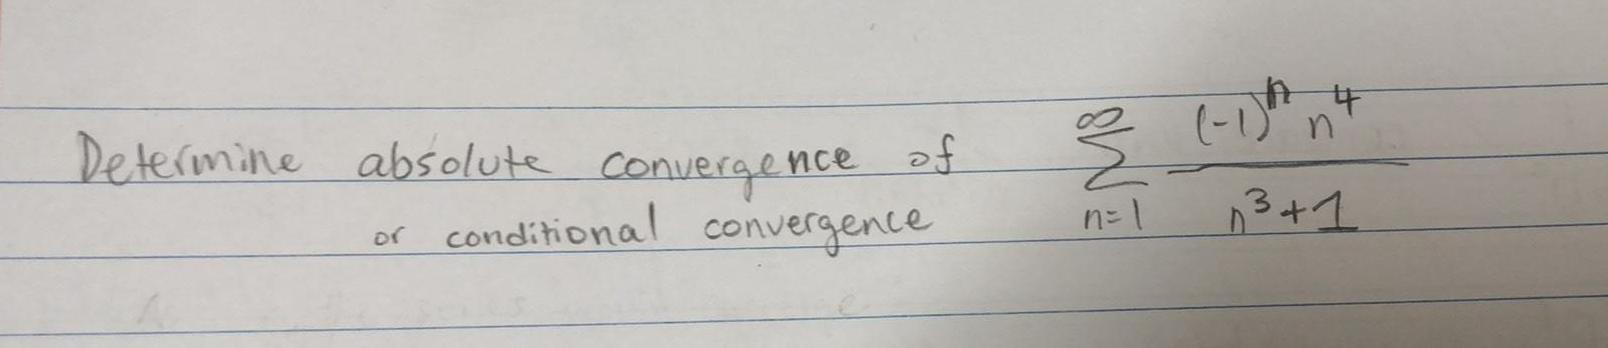 Determine absolute convergence of ∑_{n=1}^{∞} \frac{(-1)^n n^4}{n^3+1}
or conditional convergence